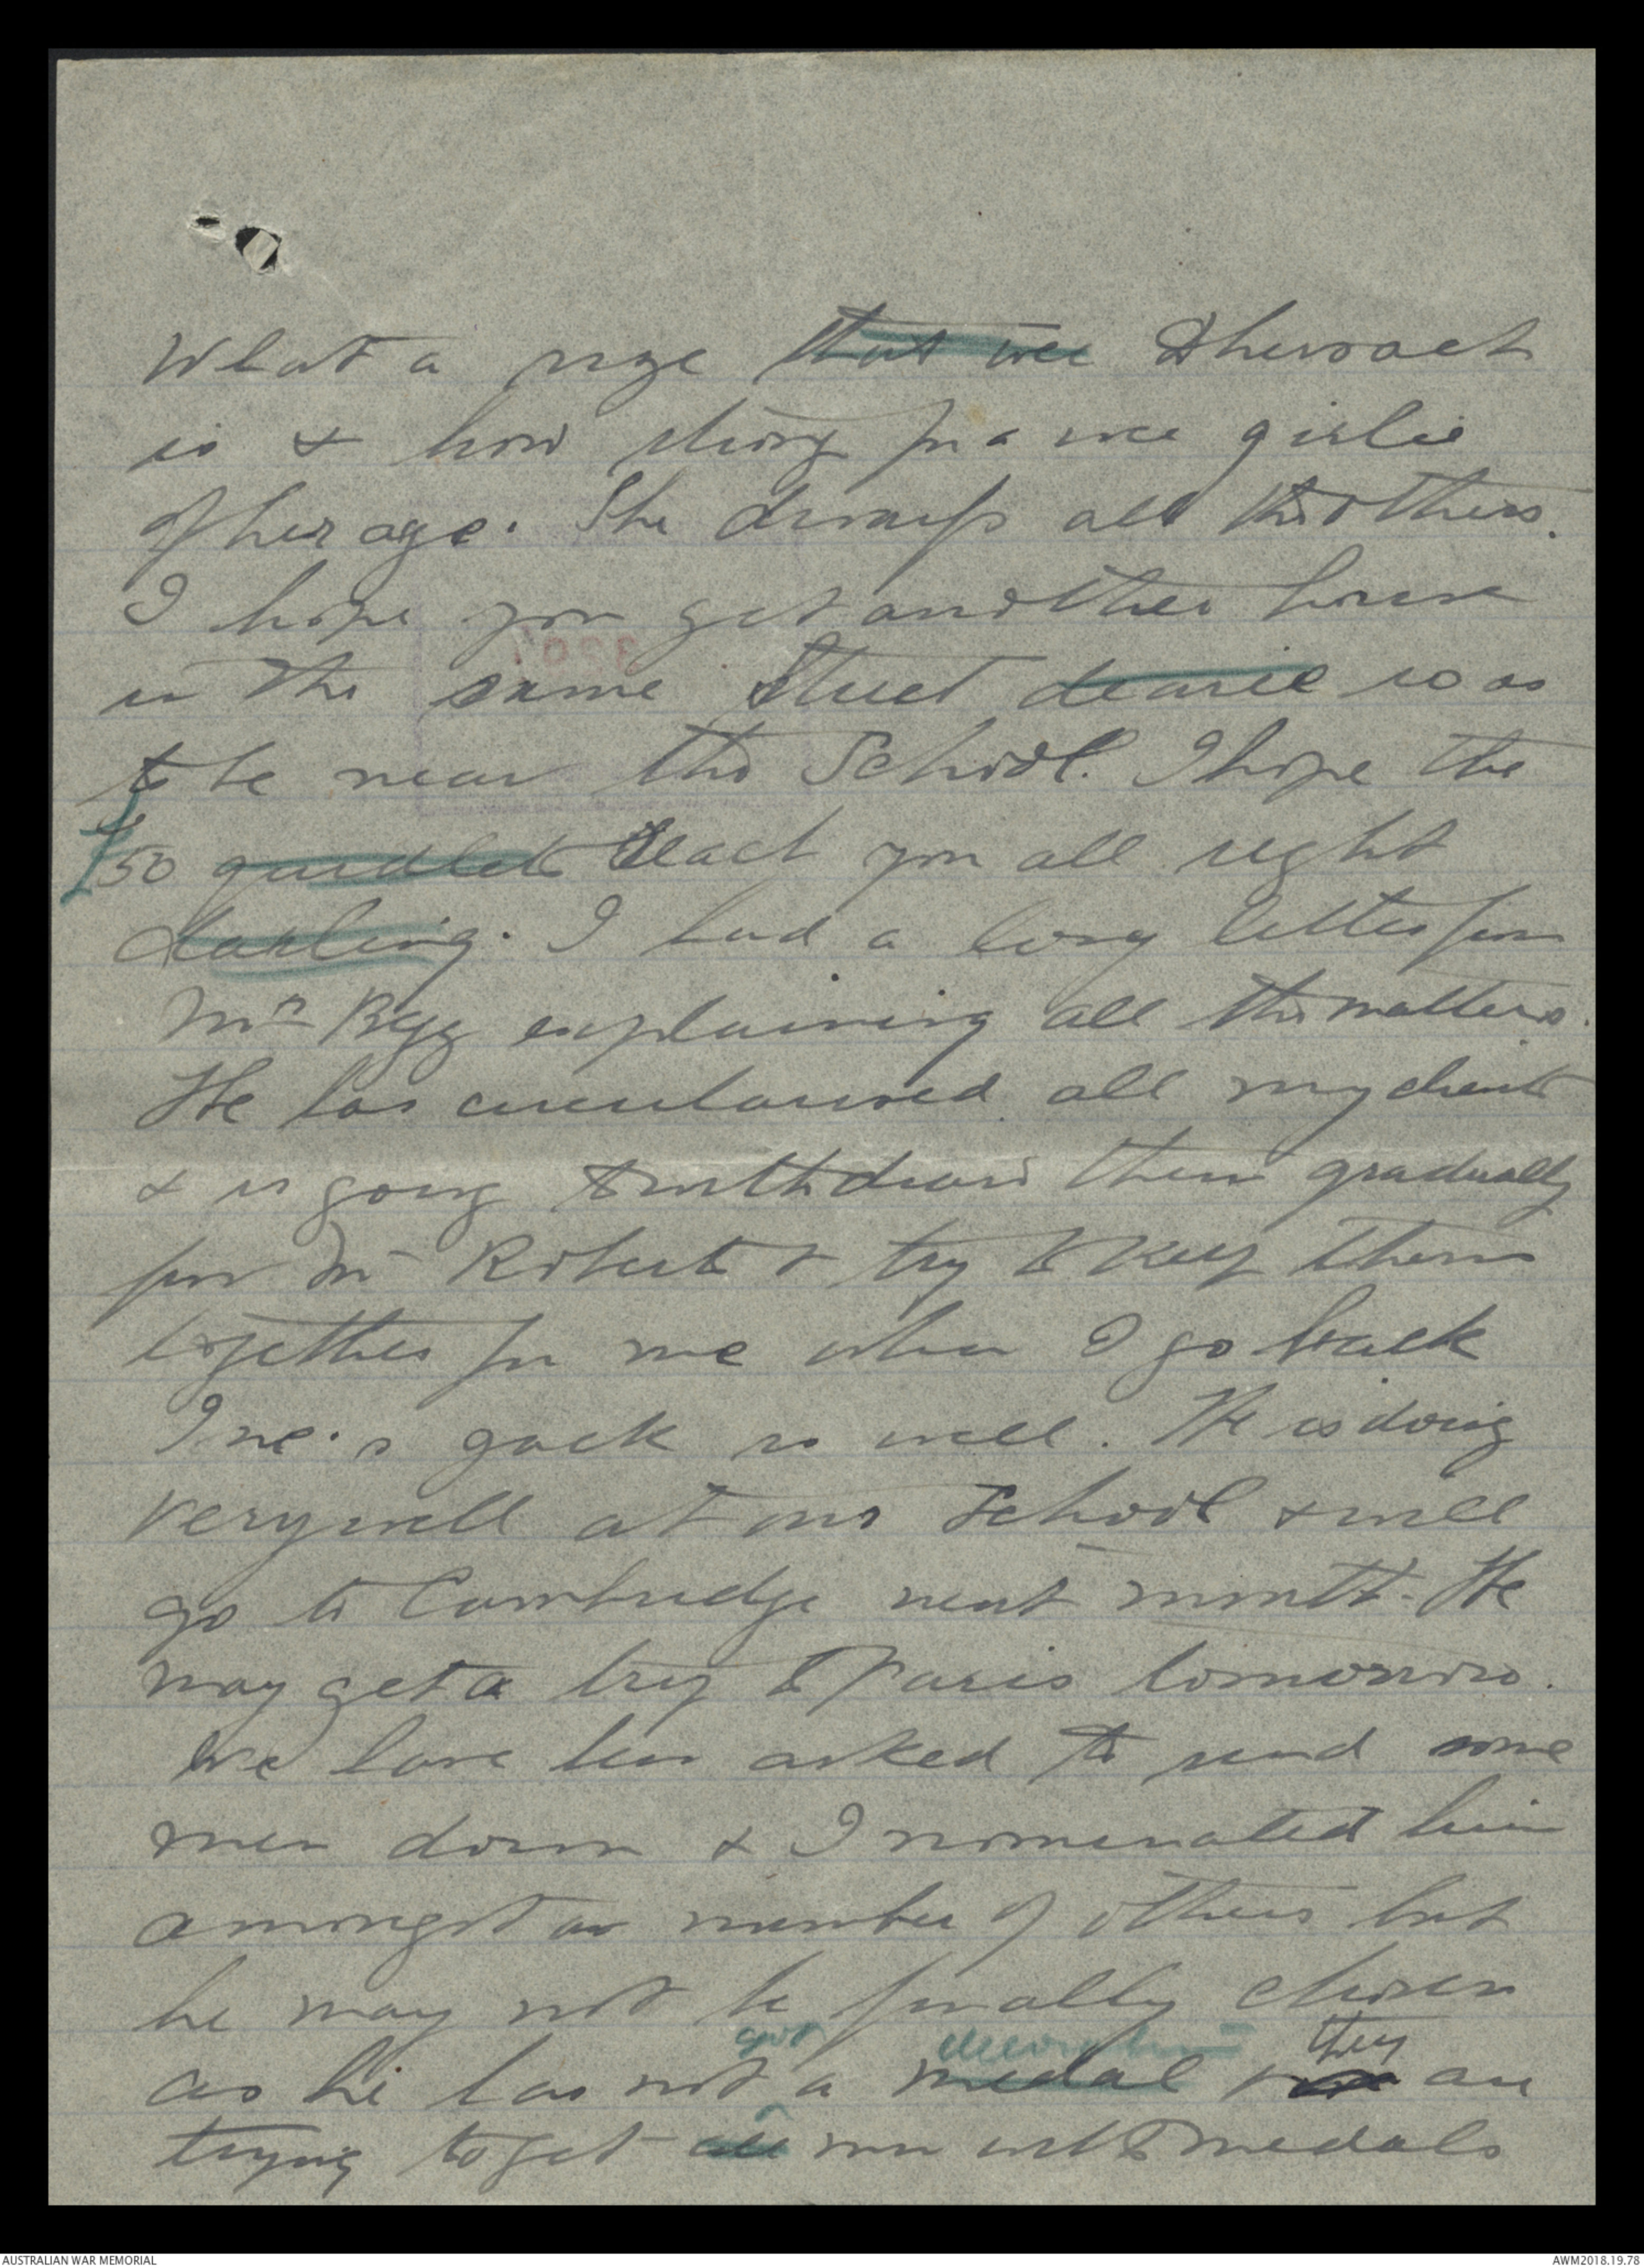 What a size that wee
is & how strong for a wee girlie
of her age. She dwarfs all the others.
I hope you get another house
in the same street dearie so as
to be near the School. I hope the
£50 reach you all right
darling. I had a long letter from
Mr Bigg explaining all the matters.
He has circularised all my clients
& is going to withdraw them gradually
from Mr Roberts & try to keep them
together for me when I go back
Jack is well. He is doing
very well at our School & will
go to Cambridge next month. He
may get a trip to Paris tomorrow.
We have been asked to send some
men down & I nominated him
amongst a number of others but
he may not be finally chosen
got decoration they
as he has not a medal & are
trying to get all men with medals
3297
AUSTRALIAN WAR MEMORIAL
AWM2018.19.78